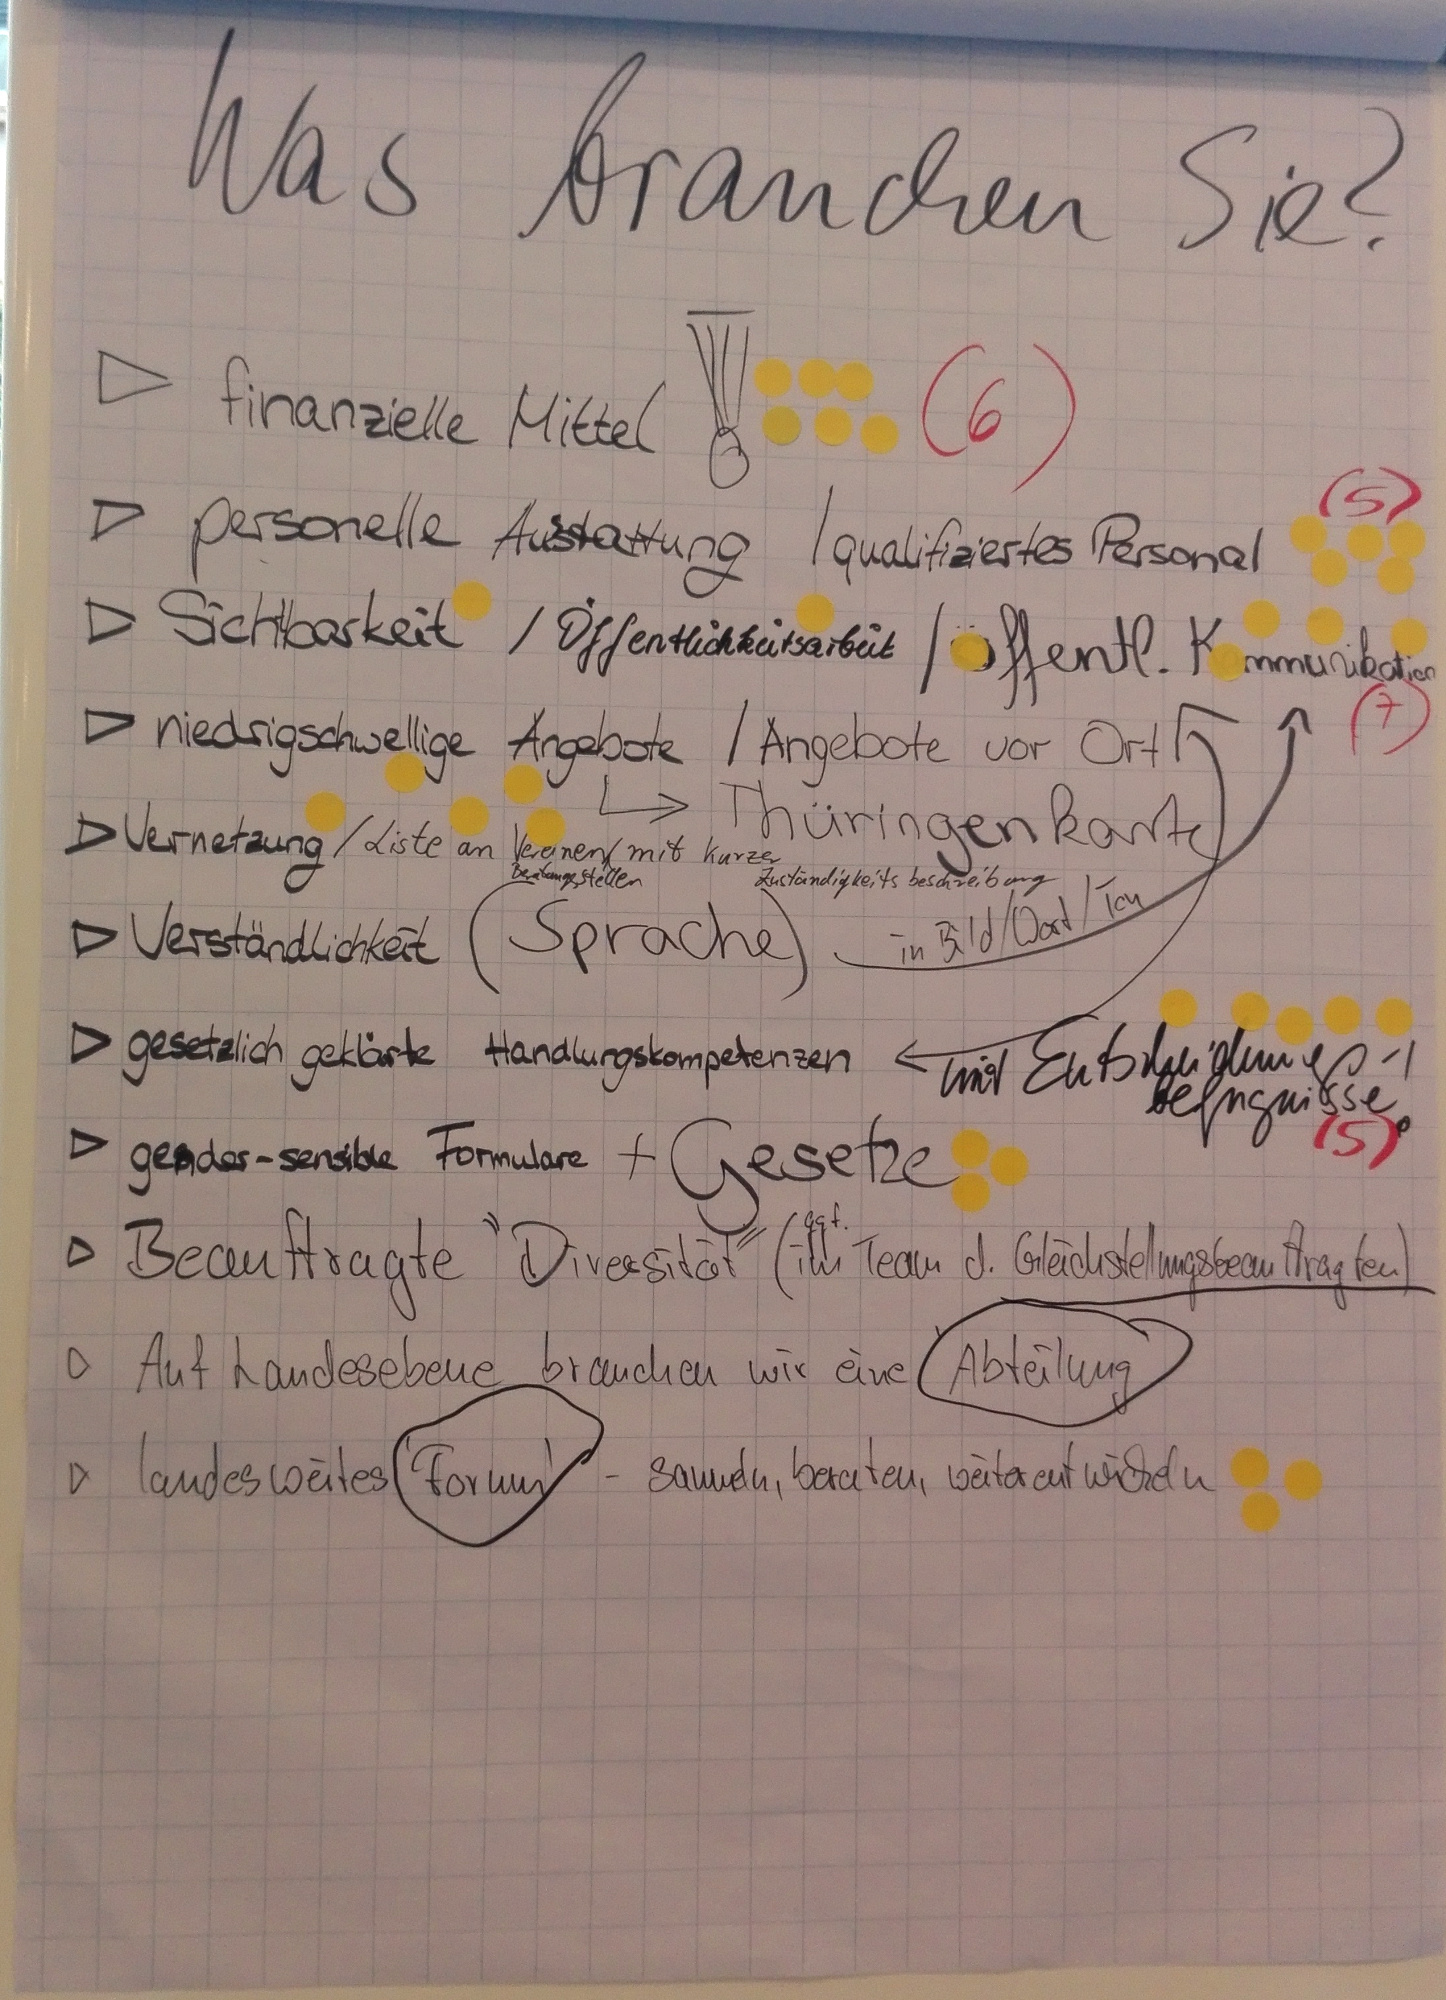 Was brauchen Sie?
▷ finanzielle Mittel (6)
(5)
▷ personelle Ausstattung / qualifiziertes Personal
▷ Sichtbarkeit / Öffentlichkeitsarbeit / öffentl. Kommunikation
(7)
▷ niedrigschwellige Angebote / Angebote vor Ort
↳ Thüringenkarte
▷ Vernetzung / Liste an Vereinen / mit kurzer
Beratungsstellen Zuständigkeitsbeschreibung
▷ Verständlichkeit (Sprache) in Bild/Wort/Ton
▷ gesetzlich geklärte Handlungskompetenzen ← mit Entscheidungs-
befugnisse
(5)
▷ gender-sensible Formulare + Gesetze
ggf.
▷ Beauftragte "Diversität" (im Team d. Gleichstellungsbeauftragten)
▷ Auf Landesebene brauchen wir eine Abteilung
▷ landesweites 'Forum' - sammeln, beraten, weiterentwickeln